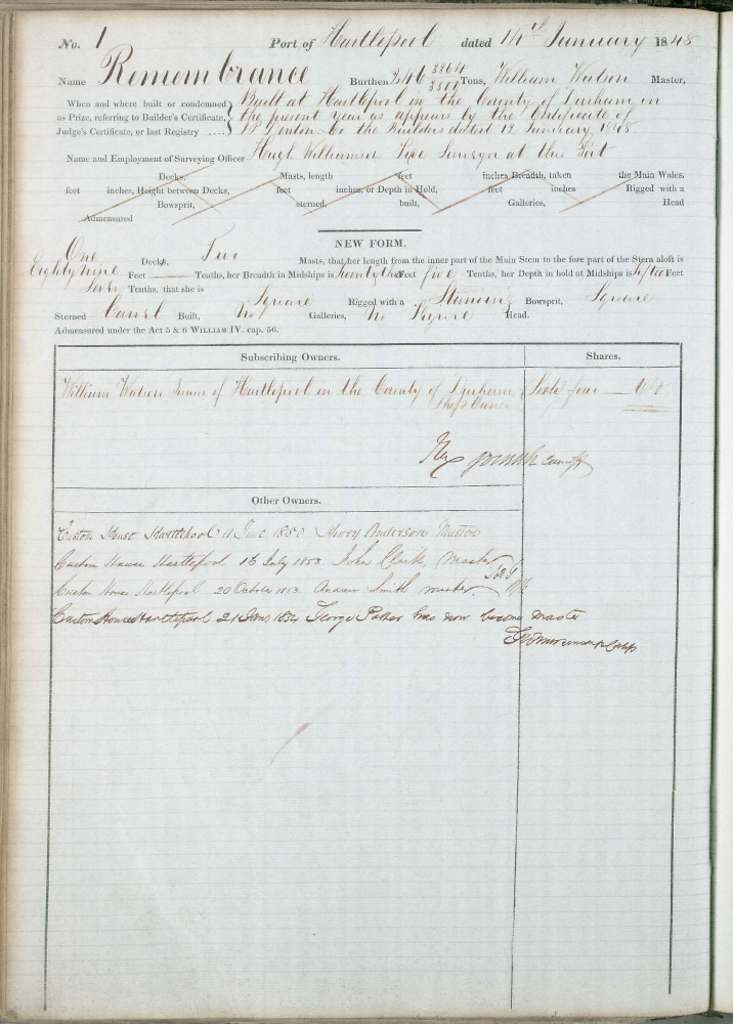 No. 1 Port of Hartlepool dated 14th January 1848
Name Remembrance Burthen 246 Tons, William Watson Master,
When and where built or condemned Built at Hartlepool in the County of Durham in
as Prize, referring to Builder's Certificate, the present year as appears by the Certificate of
Judge's Certificate, or last Registry .... Denton Co the Builders dated 12 January 1848
Name and Employment of Surveying Officer Hugh Williamson Tide Surveyor at this Port
Decks, Masts, length feet inches Breadth, taken the Main Wales,
feet inches, Height between Decks, feet inches, or Depth in Hold, feet inches Rigged with a
Bowsprit, sterned, built, Galleries, Head
Admeasured
NEW FORM.
One Decks, Two Masts, that her length from the inner part of the Main Stem to the fore part of the Stern aloft is
Eighty nine Feet Tenths, her Breadth in Midships is Twenty three Feet five Tenths, her Depth in hold at Midships is fifteen Feet
Tenths, that she is Square Rigged with a Standing Bowsprit, Square
Sterned Carvel Built, No Galleries, No Figure Head.
Admeasured under the Act 5 & 6 WILLIAM IV. cap. 56.
Subscribing Owners. Shares.
William Watson Junior of Hartlepool in the County of Durham Sixty four 64
Ship Owner
Other Owners.
Custom House Hartlepool 11 1850 Anderson Master
Custom House Hartlepool 16 July 1853 John Clark, Master
Custom House Hartlepool 20 October 1853 Andrew Smith master
Custom House Hartlepool 21 1854 George Parker has now become master